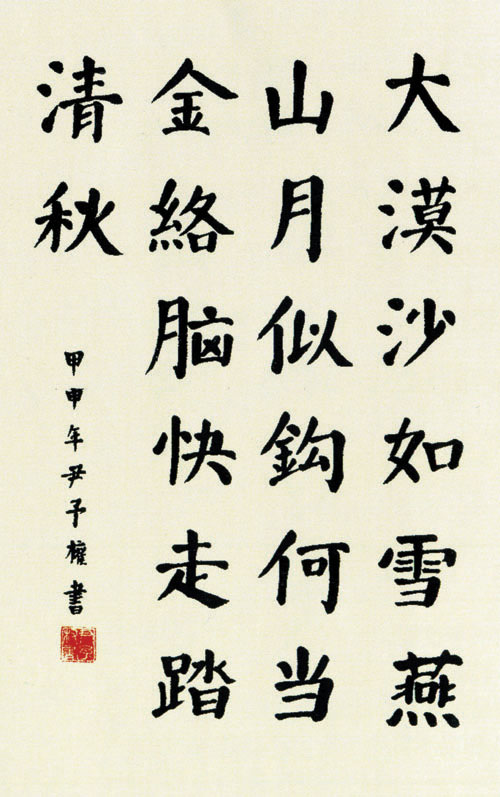 大漠沙如雪燕
山月似鈎何当
金絡脑快走踏
清秋
甲申年尹予權書